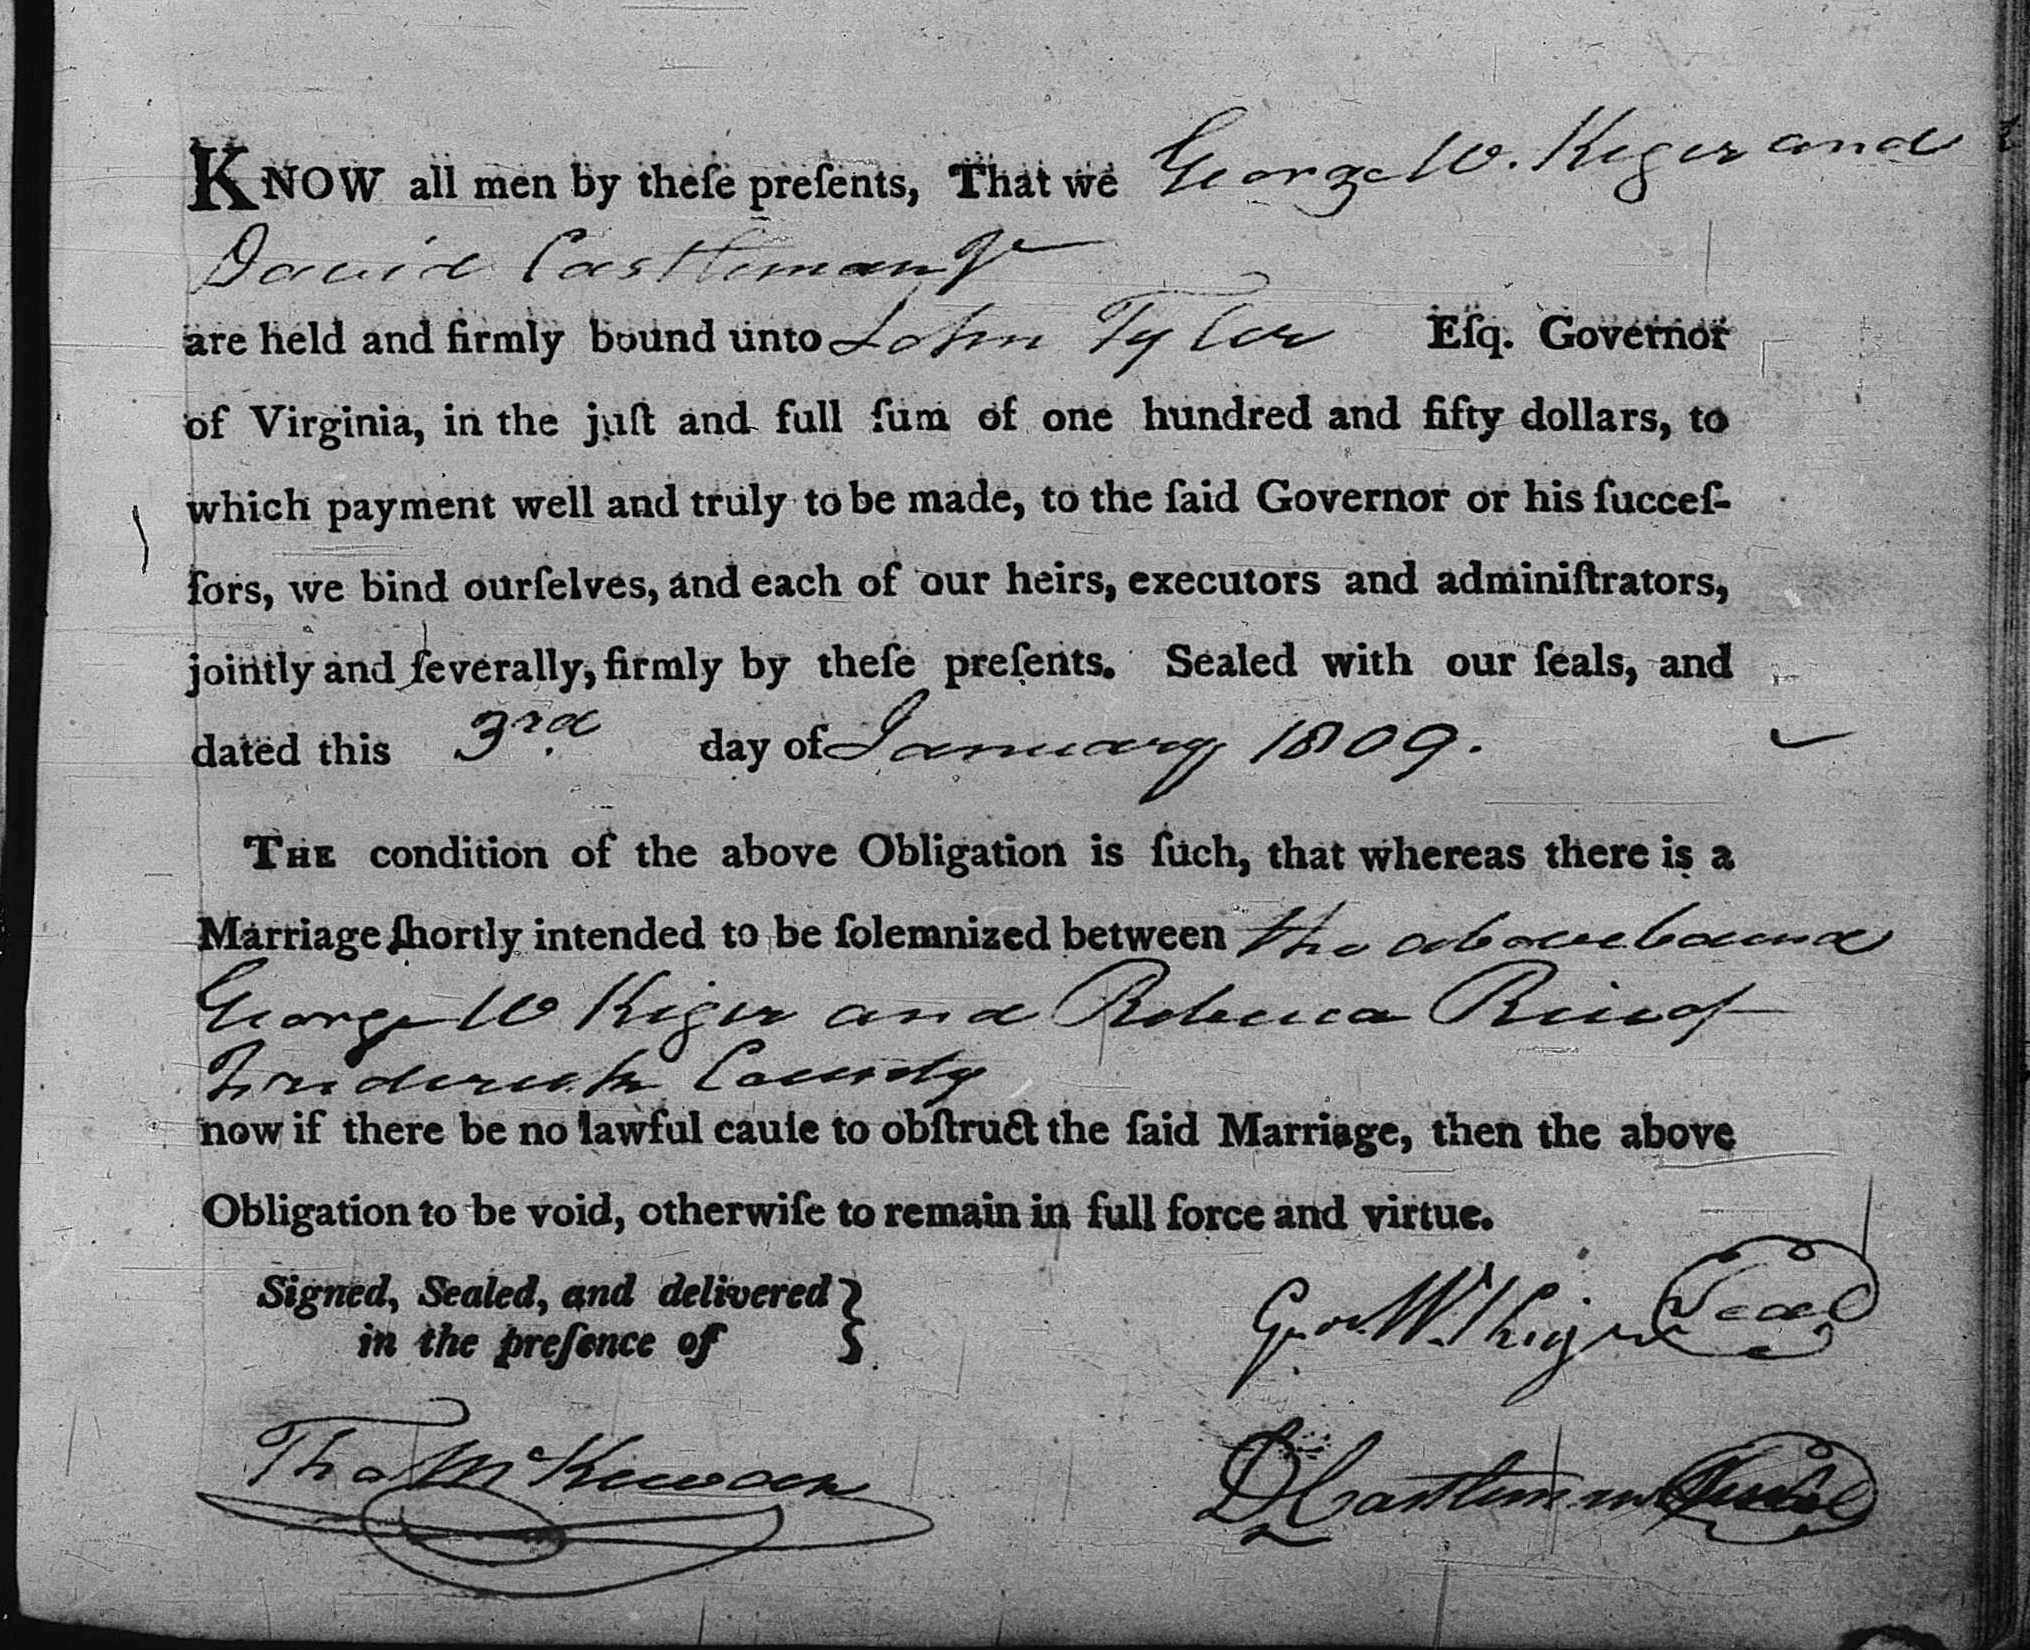 KNOW all men by theſe preſents, That we George W. Kiger and
David Castleman Jr
are held and firmly bound unto John Tyler Eſq. Governor
of Virginia, in the juſt and full ſum of one hundred and fifty dollars, to
which payment well and truly to be made, to the ſaid Governor or his ſucceſ-
ſors, we bind ourſelves, and each of our heirs, executors and adminiſtrators,
jointly and ſeverally, firmly by theſe preſents. Sealed with our ſeals, and
dated this 3rd day of January 1809.
THE condition of the above Obligation is ſuch, that whereas there is a
Marriage ſhortly intended to be ſolemnized between the above bound
George W Kiger and Rebecca of
Frederick County
now if there be no lawful cauſe to obſtruct the ſaid Marriage, then the above
Obligation to be void, otherwiſe to remain in full force and virtue.
Signed, Sealed, and delivered }
in the preſence of
Geo. W. Kiger Seal
Tho A McKewan
D Castleman Seal